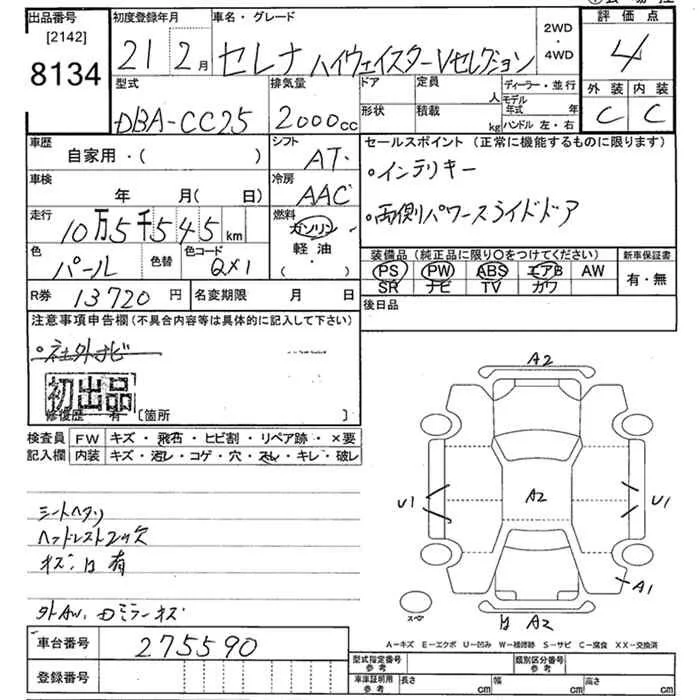 出品番号 初度登録年月 車名・グレード 2WD・4WD 評価点
[2142]
8134 21 2月 セレナ ハイウェイスターVセレクション 4
型式 排気量 ドア 定員 人 ディーラー・並行 外装 内装
DBA-CC25 2000cc 形状 積載 kg モデル年式 年 C C
ハンドル 左・右
車歴 シフト セールスポイント (正常に機能するものに限ります)
自家用・( ) AT・
車検 冷房 ・インテリキー
年 月( 日) AAC
走行 燃料 ・両側パワースライドドア
10万5千545km ガソリン
軽油・( )
色 色替 色コード 装備品(純正品に限り○をつけてください) 新車保証書
パール QX1 PS PW ABS エアB AW 有・無
SR ナビ TV カワ
R券 13720円 名変期限 月 日 後日品
注意事項申告欄(不具合内容等は具体的に記入して下さい)
・社外ナビ
初出品
修復歴 有 〔箇所 〕
検査員 FW キズ・飛石・ヒビ割・リペア跡・×要
記入欄 内装 キズ・汚レ・コゲ・穴・スレ・キレ・破レ
A2
U1 A2 U1
シートヘタリ
ヘッドレスト2ケ欠
キズ・凹有
A1
スペア
凹 A2
外AW、Dミラーキズ
A=キズ E=エクボ U=凹み W=補修跡 S=サビ C=腐食 XX=交換済
車台番号 275590
型式指定番号参考 類別区分番号参考
登録番号 車庫証明用参考 長さ cm 幅 cm 高さ cm